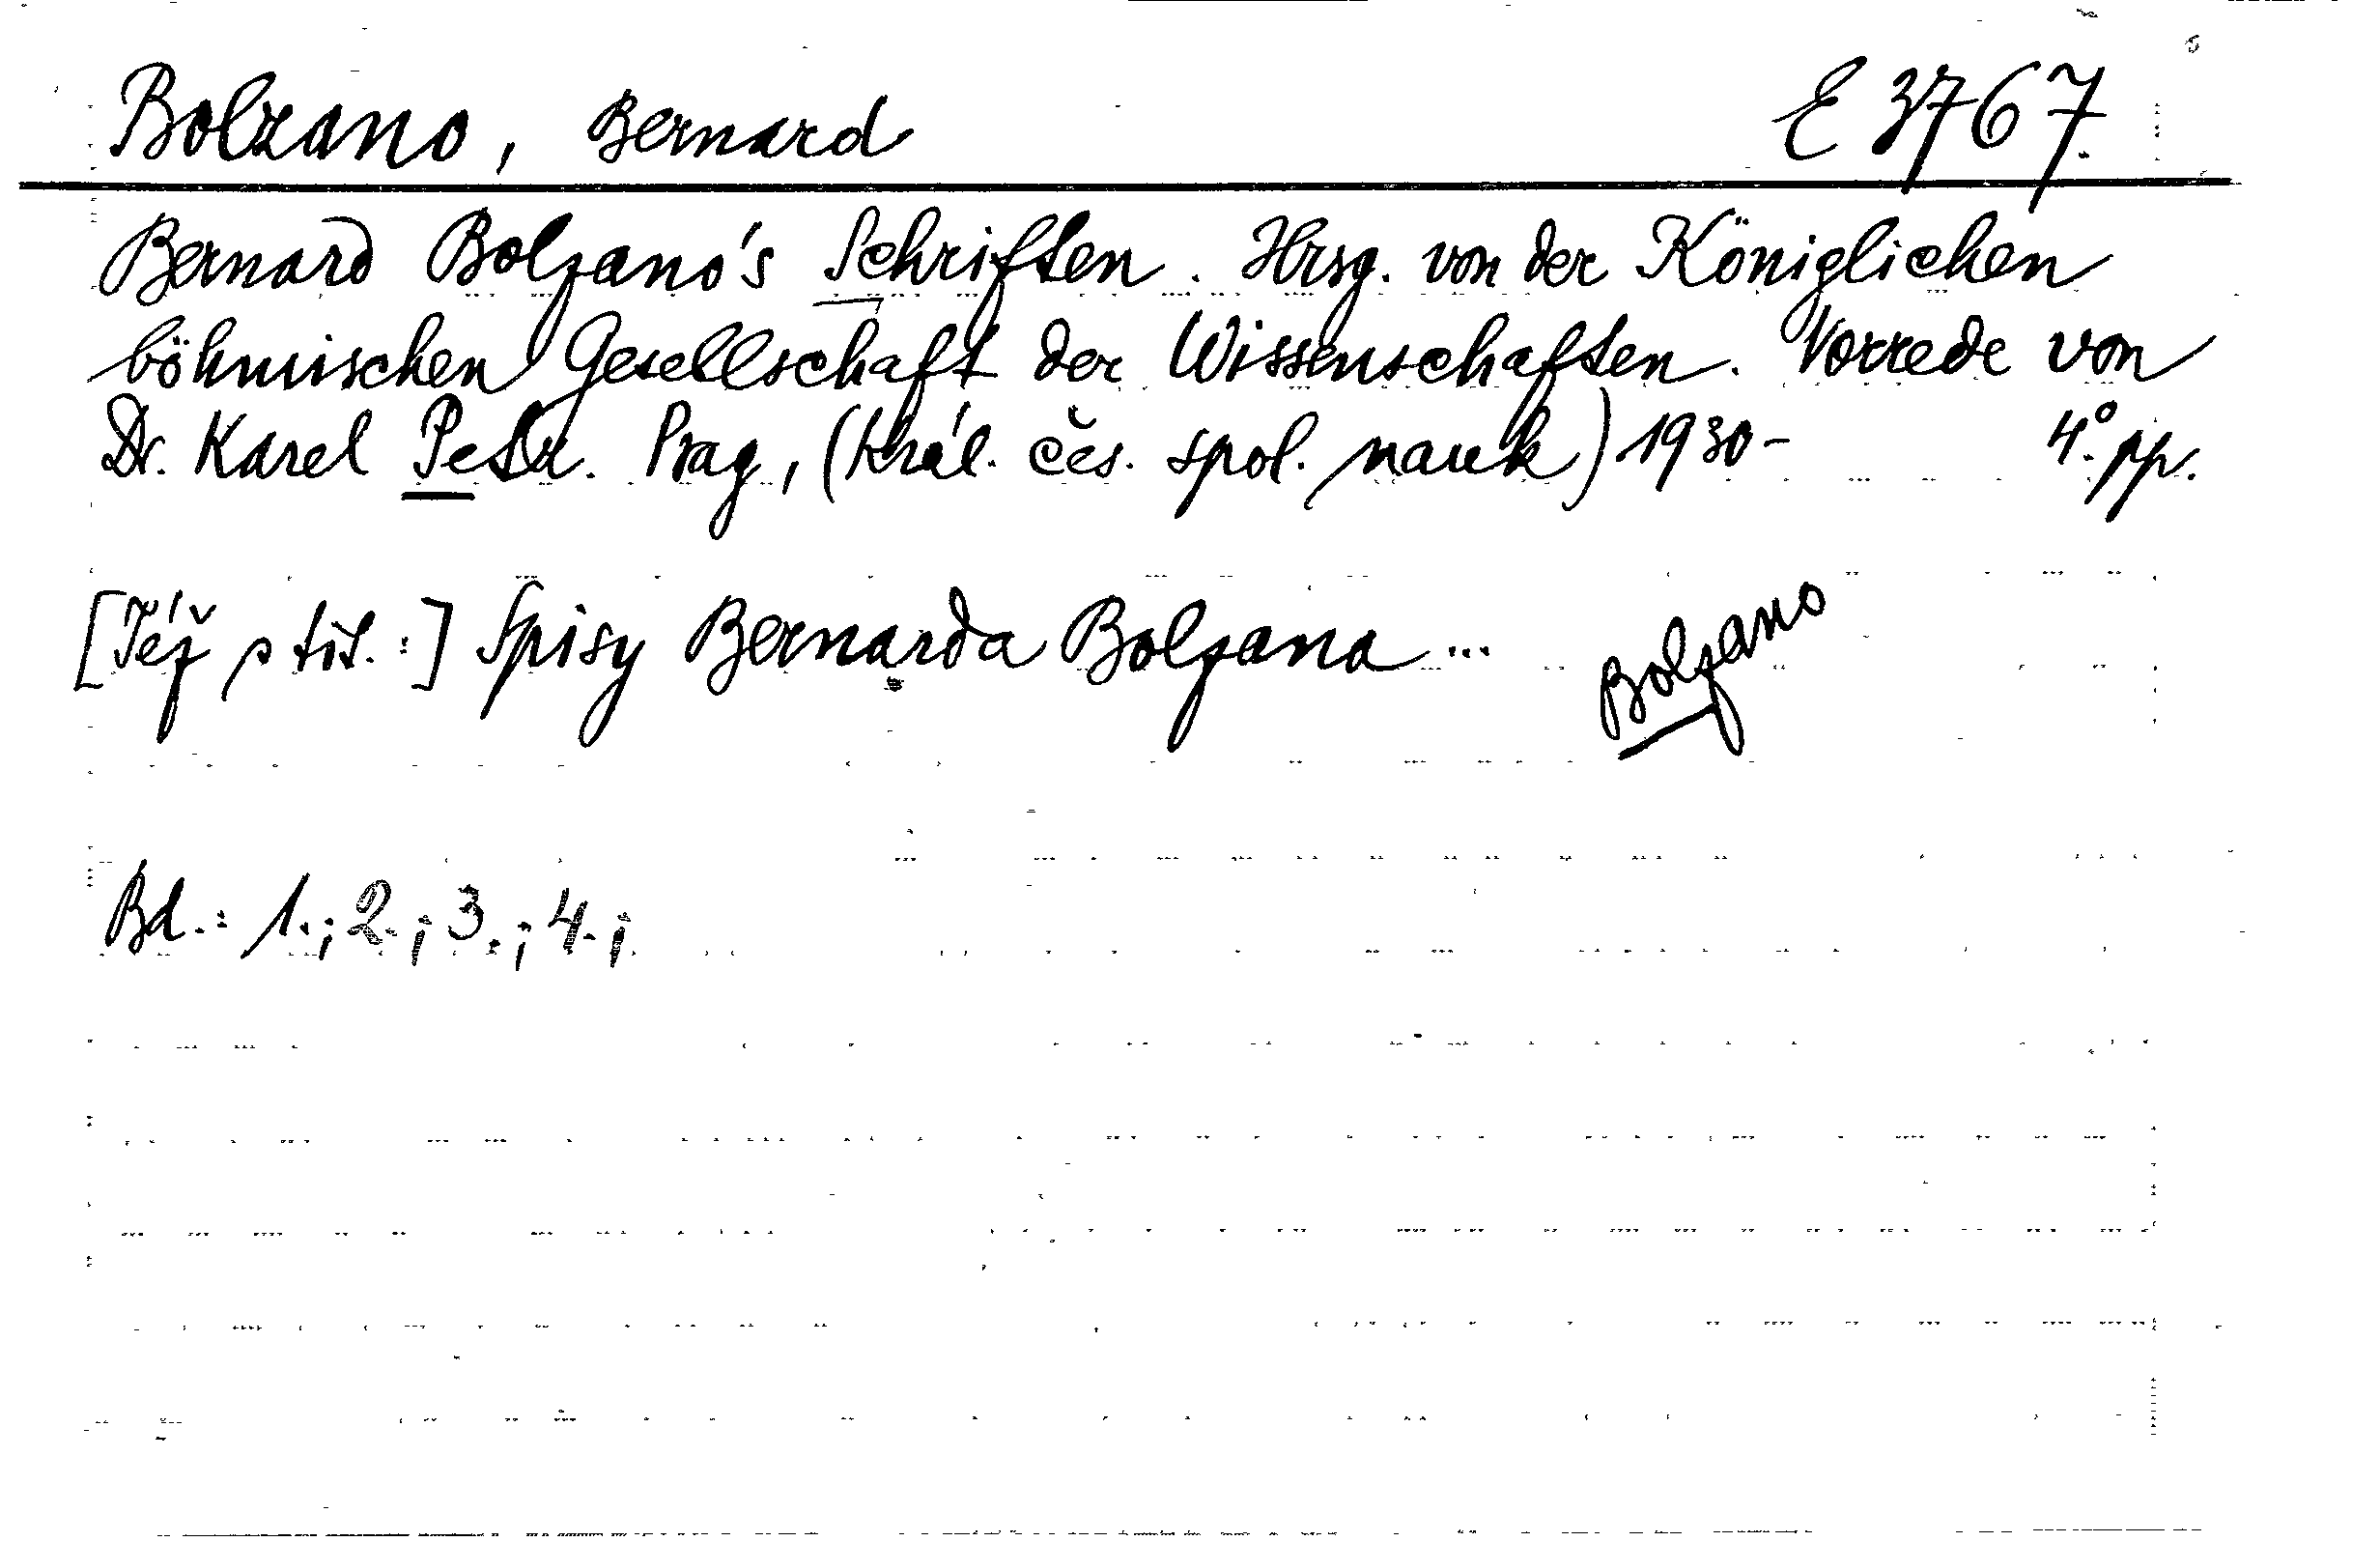 Bolzano, Bernard E 3767
Bernard Bolzano's Schriften. Hrsg. von der Königlichen
böhmischen Gesellschaft der Wissenschaften. Vorrede von
Dr. Karel Petr. Prag, (Král. čes. spol. nauk) 1930- 4° pp.
[Též s tit.:] Spisy Bernarda Bolzana ...
Bolzano
Bd.: 1.; 2.; 3.; 4.;